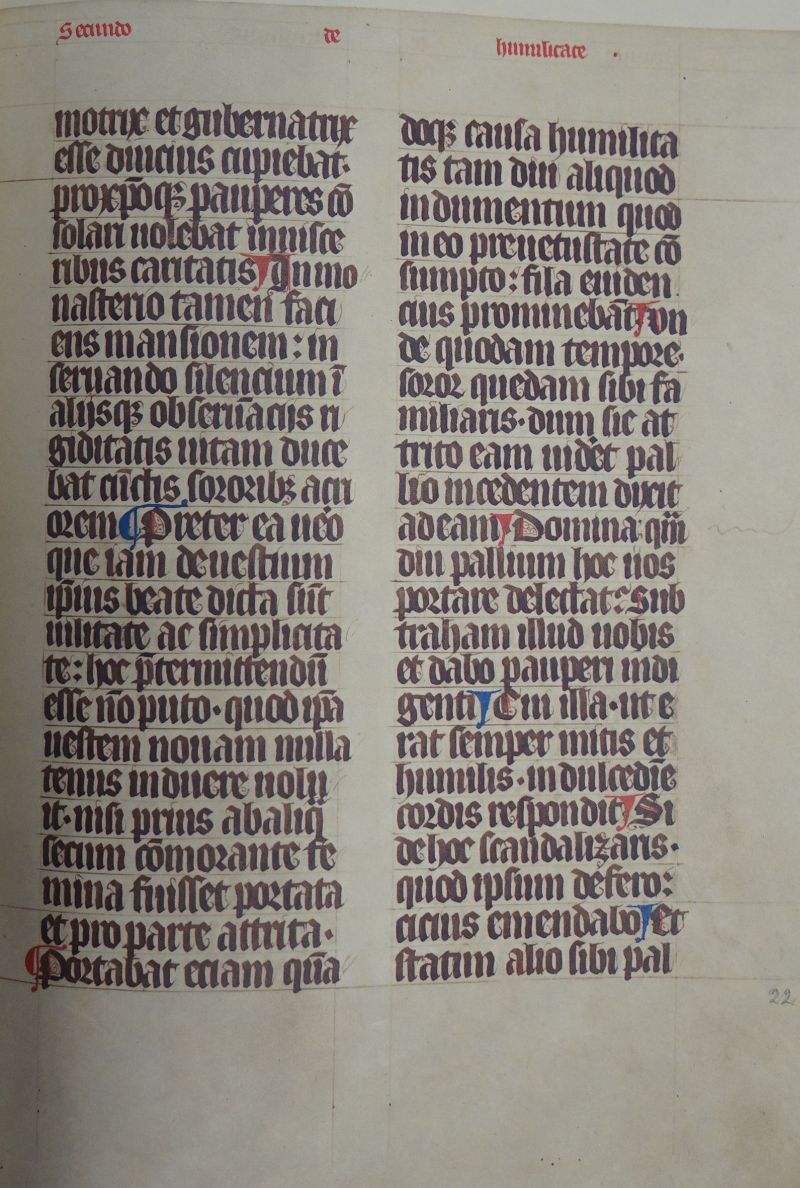 Secundo de humilitate
motrix et gubernatrix
esse diucius cupiebat.
prox̄poq; pauperes cō
solari uolebat in uisce
ribus caritatis In mo
nasterio tamen faci
ens mansionem : in
seruando silencium ī
alijsq; obseruācijs ri
giditatis uitam duce
bat cūctis sororib; acri
orem Preter ea uēo
que iam de uestium
ip̄ius beate dicta sūt
uilitate ac simplicita
te : hoc p̄termittendū
esse nō puto . quod ip̄a
uestem nouam nulla
tenus induere uolu
it . nisi prius ab aliq̄
secum cōmorante fe
mina fuisset portata
et pro parte attrita .
Portabat eciam qūa
doq; causa humilita
tis tam diu aliquod
indumentum quod
in eo pre uetustate cō
sumpto : fila euiden
cius prominebāt Vn
de quodam tempore .
soror quedam sibi fa
miliaris . dum sic at
trito eam uidēt pal
lio incedentem dixit
ad eam Domina qm̄
diu pallium hoc uos
portare delectat : Sub
traham illud uobis
et dabo pauperi indi
genti Cui illa . ut e
rat semper mitis et
humilis . in dulcedīe
cordis respondit Si
de hoc scandalizaris .
quod ipsum defero :
cicius emendabo Et
statim alio sibi pal
22